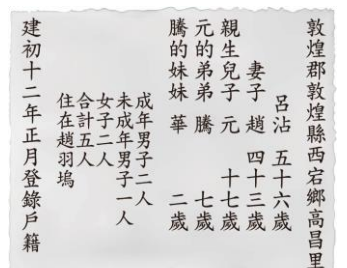 敦煌郡敦煌縣西宕鄉高昌里
呂沾 五十六歲
妻子 趙 四十三歲
親生兒子 元 十七歲
元的弟弟 騰 七歲
騰的妹妹 華 二歲
成年男子二人
未成年男子一人
女子二人
合計五人
住在趙羽塢
建初十二年正月登錄戶籍